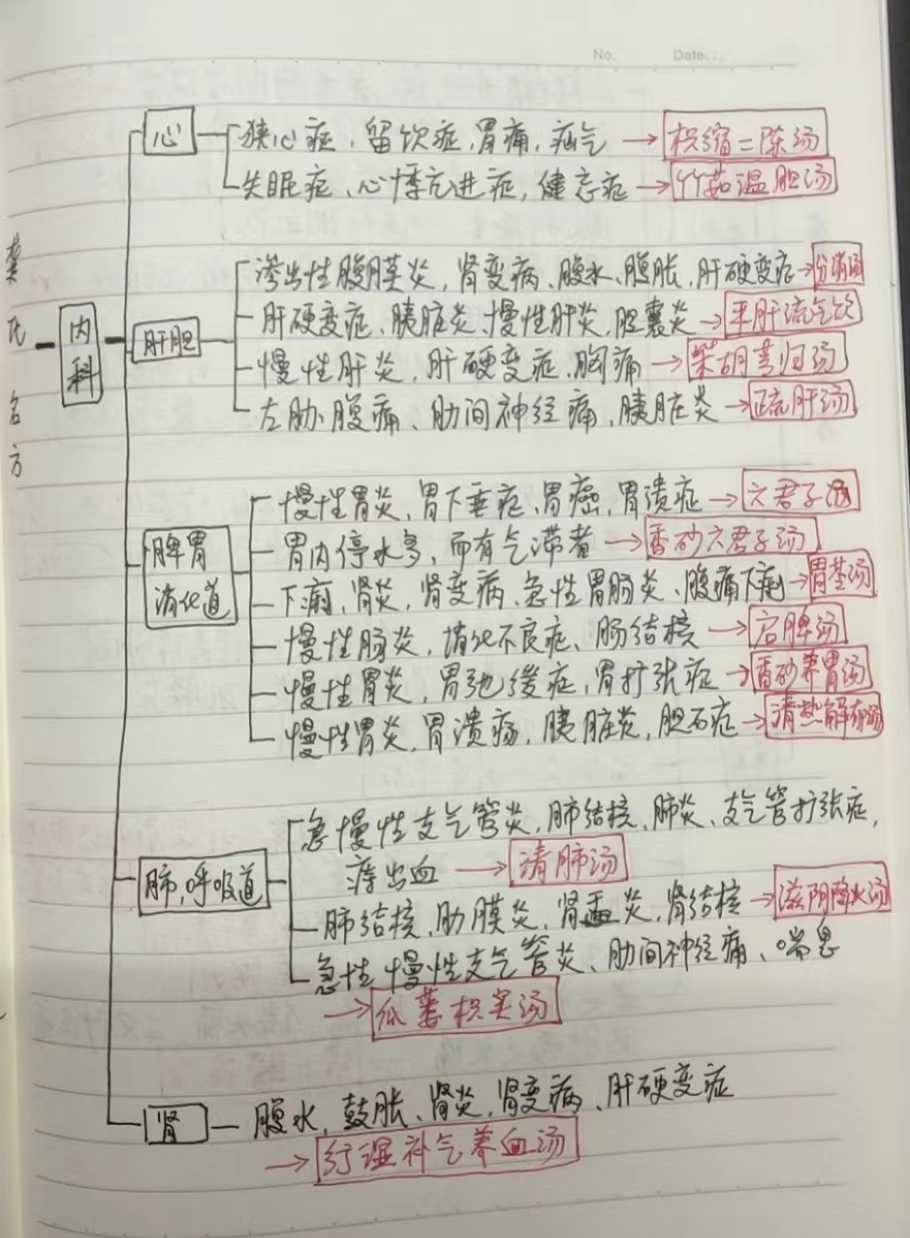 No. Date.
龚氏名方
内科
心
狭心症，留饮症，胃痛，疝气 → 枳缩二陈汤
失眠症、心悸亢进症，健忘症 → 竹茹温胆汤
肝胆
渗出性腹膜炎，肾变病、腹水、腹胀，肝硬变症→
肝硬变症、胰脏炎、慢性肝炎，胆囊炎→平肝流气饮
慢性肝炎，肝硬变症、胸痛→柴胡青归汤
左肋腹痛、肋间神经痛，胰脏炎→疏肝汤
脾胃
消化道
慢性胃炎，胃下垂症、胃癌，胃溃症→六君子汤
胃内停水多，而有气滞者→香砂六君子汤
下痢，肾炎，肾变病、急性胃肠炎、腹痛下痢→胃苓汤
慢性肠炎，消化不良症、肠结核→启脾汤
慢性胃炎，胃弛缓症，胃扩张症→香砂养胃汤
慢性胃炎，胃溃疡，胰脏炎，胆石症→清热解郁汤
肺，呼吸道
急慢性支气管炎，肺结核、肺炎、支气管扩张症，
痔出血→清肺汤
肺结核、肋膜炎，肾盂炎，肾结核→滋阴降火汤
急性慢性支气管炎、肋间神经痛、喘息
→瓜蒌枳实汤
肾
腹水，鼓胀、肾炎，肾变病、肝硬变症
→行湿补气养血汤